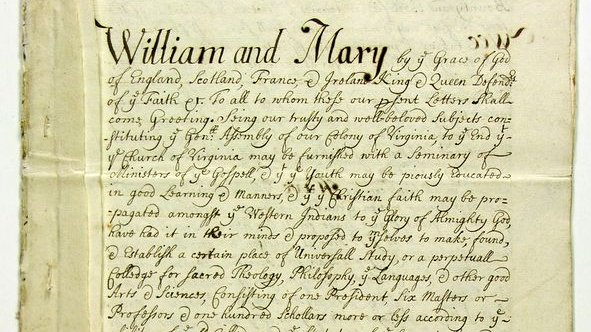 William and Mary by yͤ Grace of God
of England, Scotland, France, & Ireland King & Queen Defendrs
of yͤ Faith &c. To all to whom these our psent Letters shall
come, Greeting. Seing our trusty and well-beloved Subjects con-
stituting yͤ Genll Assembly of our Colony of Virginia, to yͤ End yͭ
yͤ Church of Virginia may be furnished with a Seminary of
Ministers of yͤ Gospell, & yͭ yͤ Youth may be piously Educated
in good Learning & Manners, & yͭ yͤ Christian faith may be pro-
pagated amongst yͤ Western Indians to yͤ glory of Almighty God,
have had it in their minds & proposed to ymselves to make, found,
& Establish a certain place of Universall Study, or a perpetuall
Colledge for Sacred Theology, Philosophy, yͤ Languages, & other good
Arts & Sciences, Consisting of one President, Six Masters or
Professors & one hundred Schollars more or less according to yͤ